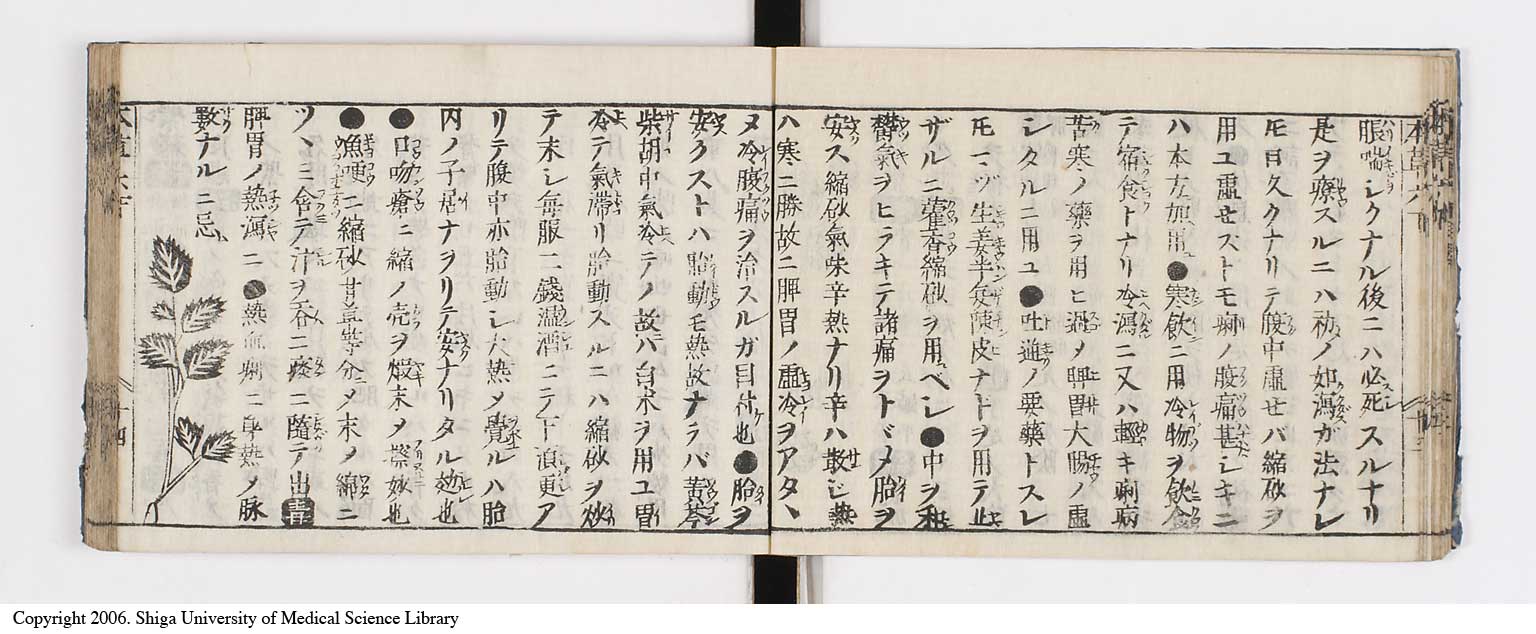 脹喘シクナル後ニハ必死スルナリ
是ヲ療スルニハ初ノ如瀉ガ法ナレ
𪜈日久クナリテ腹中虚セバ縮砂ヲ
用ユ虚セストモ痢ノ腹痛甚シキニ
ハ本方加用●寒飲ニ用冷物ヲ飲食
テ宿食トナリ冷瀉ニ又ハ輕キ痢病
苦寒ノ藥ヲ用ヒ過メ脾胃大腸ノ虚
シタルニ用ユ●吐逆ノ要藥トスレ
𪜈マヅ生姜半夏陳皮ナドヲ用テ止
ザルニ藿香縮砂ヲ用ベシ●中ヲ和
鬱氣ヲヒラキテ諸痛ヲトドメ胎ヲ
安ス縮砂氣味辛熱ナリ辛ハ散シ熱
ハ寒ニ勝故ニ脾胃ノ虚冷ヲアタヽ
メ冷腹痛ヲ治スルガ目付也●胎ヲ
安クストハ胎動モ熱故ナラバ黄芩
柴胡中氣冷テノ故ハ白朮ヲ用ユ胃
冷テ氣滞リ胎動スルニハ縮砂ヲ炒
テ末シ毎服二錢温酒ニテ下頃更ア
リテ腹中亦胎動シ大熱メ覺ルハ胎
内ノ子居ナヲリテ安ナリタル效也
●口吻瘡ニ縮ノ壳ヲ煆末メ擦妙也
●魚哽ニ縮砂甘草等分ニメ末メ綿ニ
ツヽミ含テ汁ヲ呑ニ痰ニ隨テ出 言
脾胃ノ熱瀉ニ●熱血痢ニ身熱ノ脉
數ナルニ忌
本草六下
十四
Copyright 2006. Shiga University of Medical Science Library